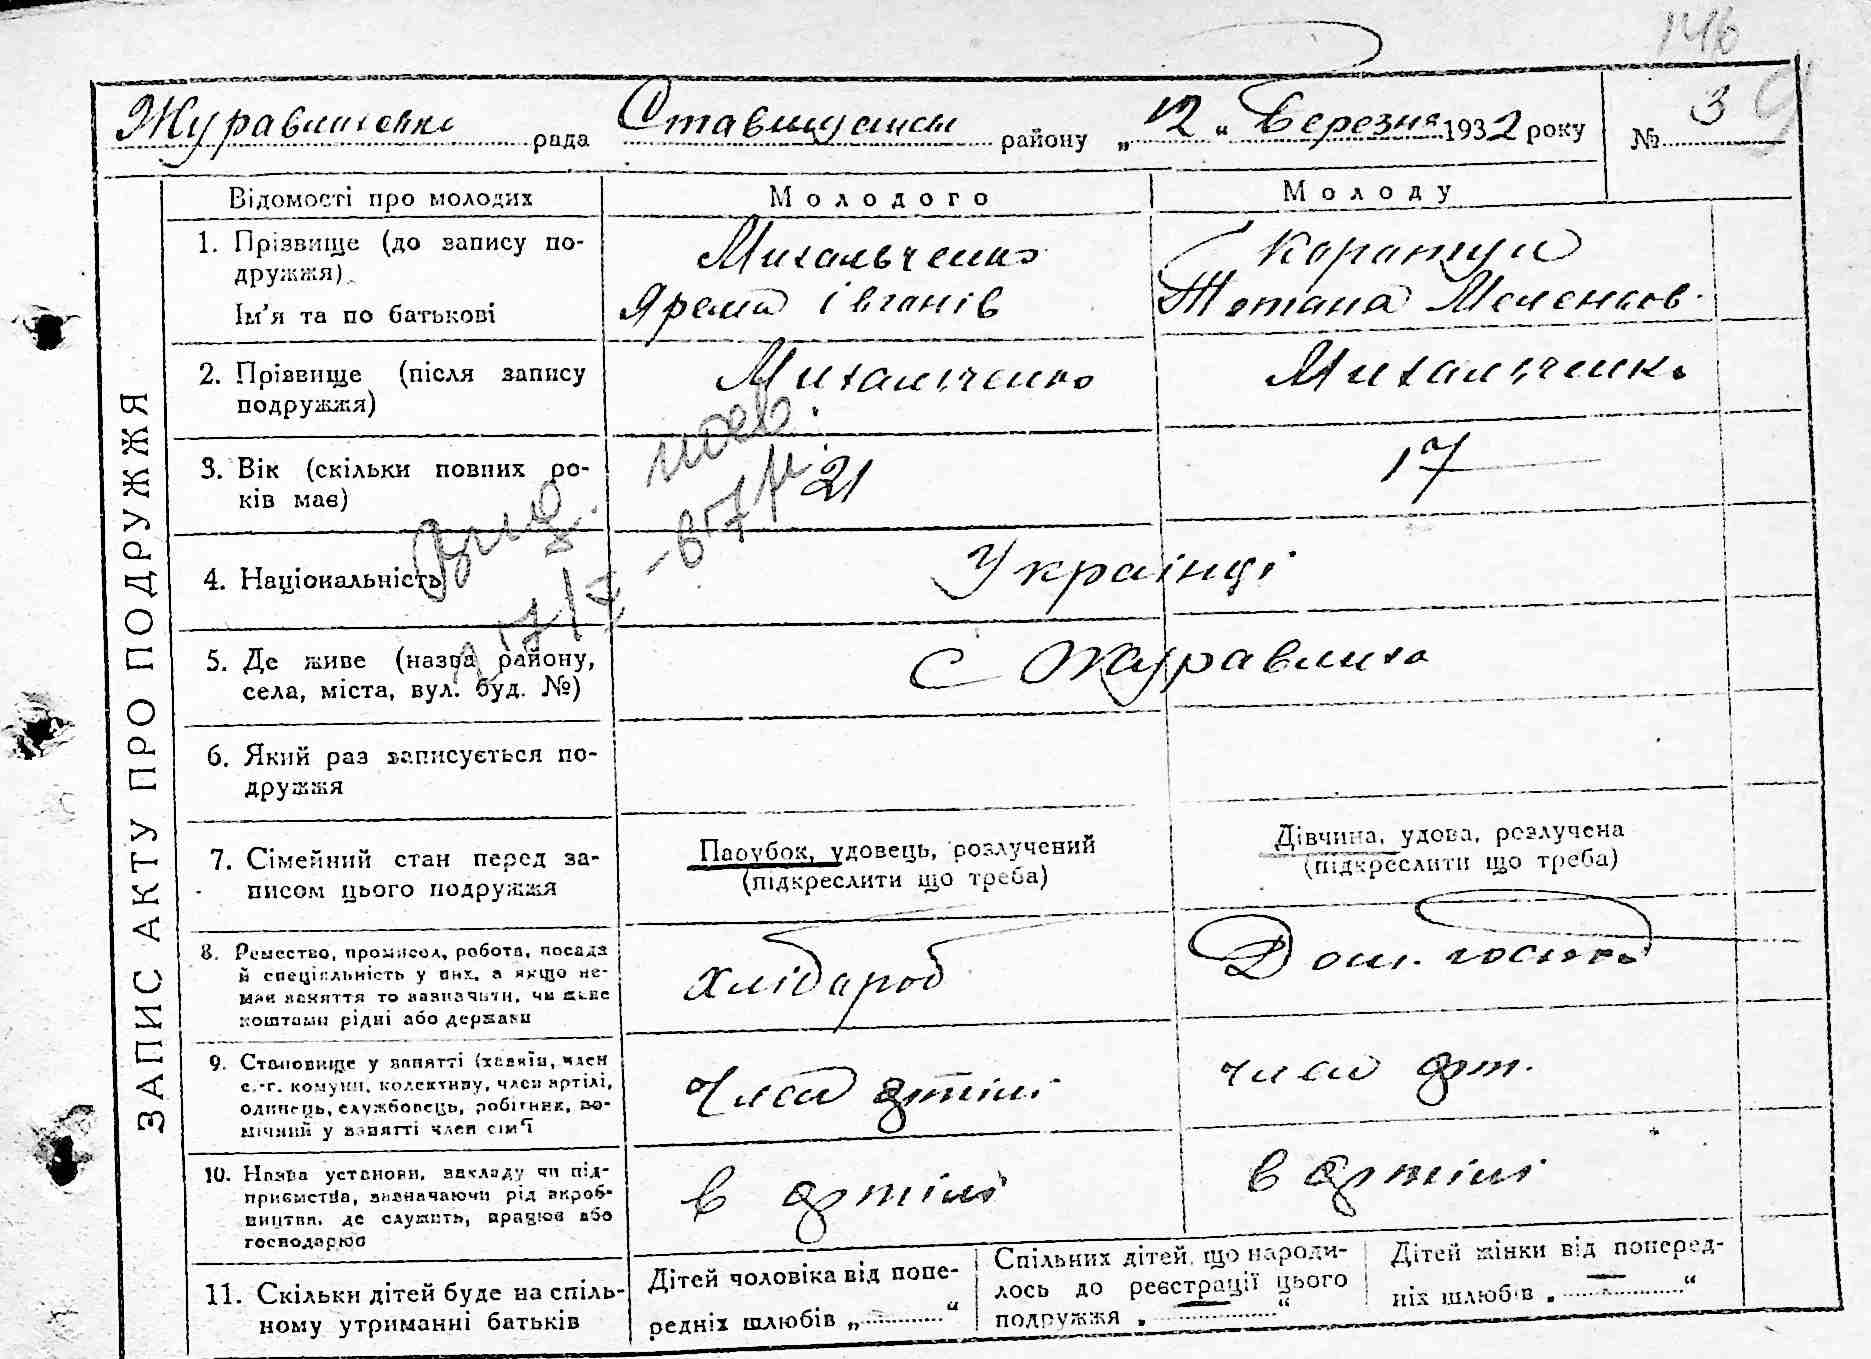 146
Журавлиська рада Ставищенськ району „12“ Березня 1932 року № 3 9
ЗАПИС АКТУ ПРО ПОДРУЖЖЯ
Відомості про молодих Молодого Молоду
1. Прізвище (до запису по-
дружжя)
Михальченко Коротун
Ім'я та по батькові Ярема Івганів Тетяна
2. Прізвище (після запису
подружжя)
Михальченко Михальченко
3. Вік (скільки повних ро-
ків має)
21 17
4. Національність Українці
5. Де живе (назва району,
села, міста, вул. буд. №)
с Журавлиха
6. Який раз записується по-
дружжя
7. Сімейний стан перед за-
писом цього подружжя
Парубок, удовець, розлучений
(підкреслити що треба)
Дівчина, удова, розлучена
(підкреслити що треба)
8. Ремество, промисел, робота, посада
й спеціяльність у них, а якщо не-
має заняття то зазначити, чи живе
коштами рідні або держави
хлібороб Дом. господ
9. Становище у занятті (хазяїн, член
с.-г. комуни, колективу, член артілі,
одинець, службовець, робітник, по-
мічний у занятті член сім'ї
член артілі член арт.
10. Назва установи, закладу чи під-
приємства, зазначаючи рід вироб-
ництва, де служить, працює або
господарює
в артілі в артілі
11. Скільки дітей буде на спіль-
ному утриманні батьків
Дітей чоловіка від попе-
редніх шлюбів „ “
Спільних дітей, що народи-
лось до реєстрації цього
подружжя „ — “
Дітей жінки від поперед-
ніх шлюбів „ — “